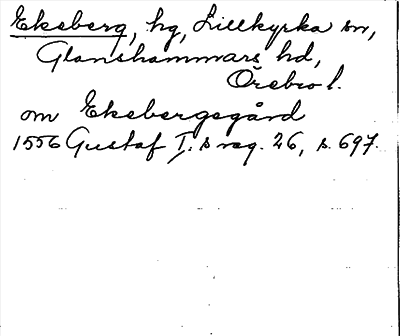 Ekeberg, hg, Lillkyrka sn,
Glanshammars hd,
Örebro l.
om Ekebergsgård
1556 Gustaf I:s reg. 26, s. 697.